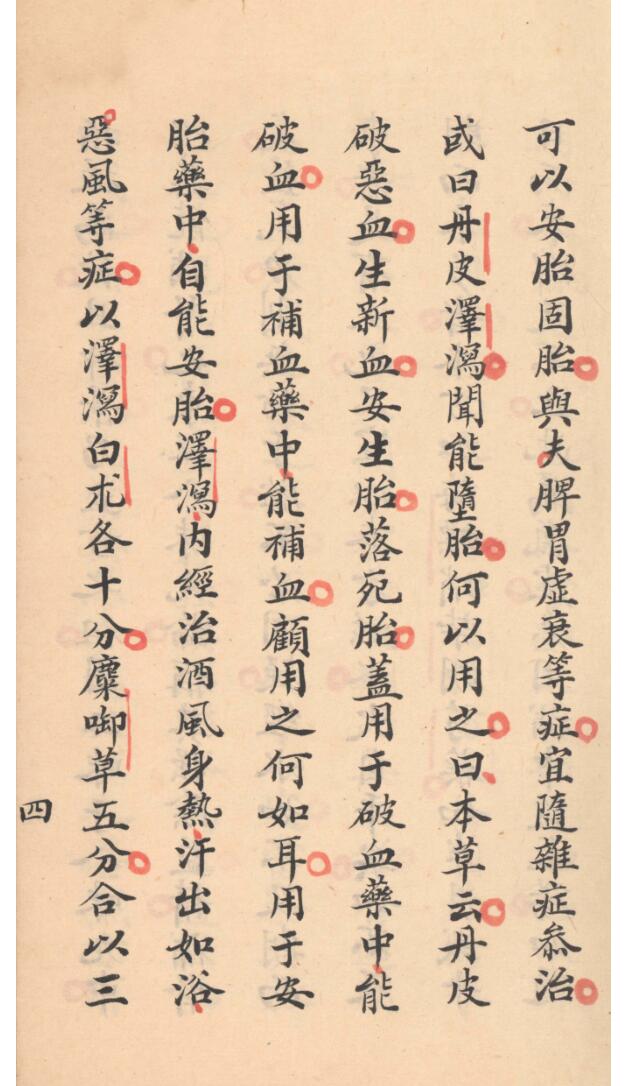 可以安胎固胎與夫脾胃虛衰等症宜隨雜症叅治
或曰丹皮澤瀉聞能墮胎何以用之曰本草云丹皮
破惡血生新血安生胎落死胎蓋用于破血藥中能
破血用于補血藥中能補血顧用之何如耳用于安
胎藥中自能安胎澤瀉內經治酒風身熱汗出如浴
惡風等症以澤瀉白朮各十分麋啣草五分合以三
四